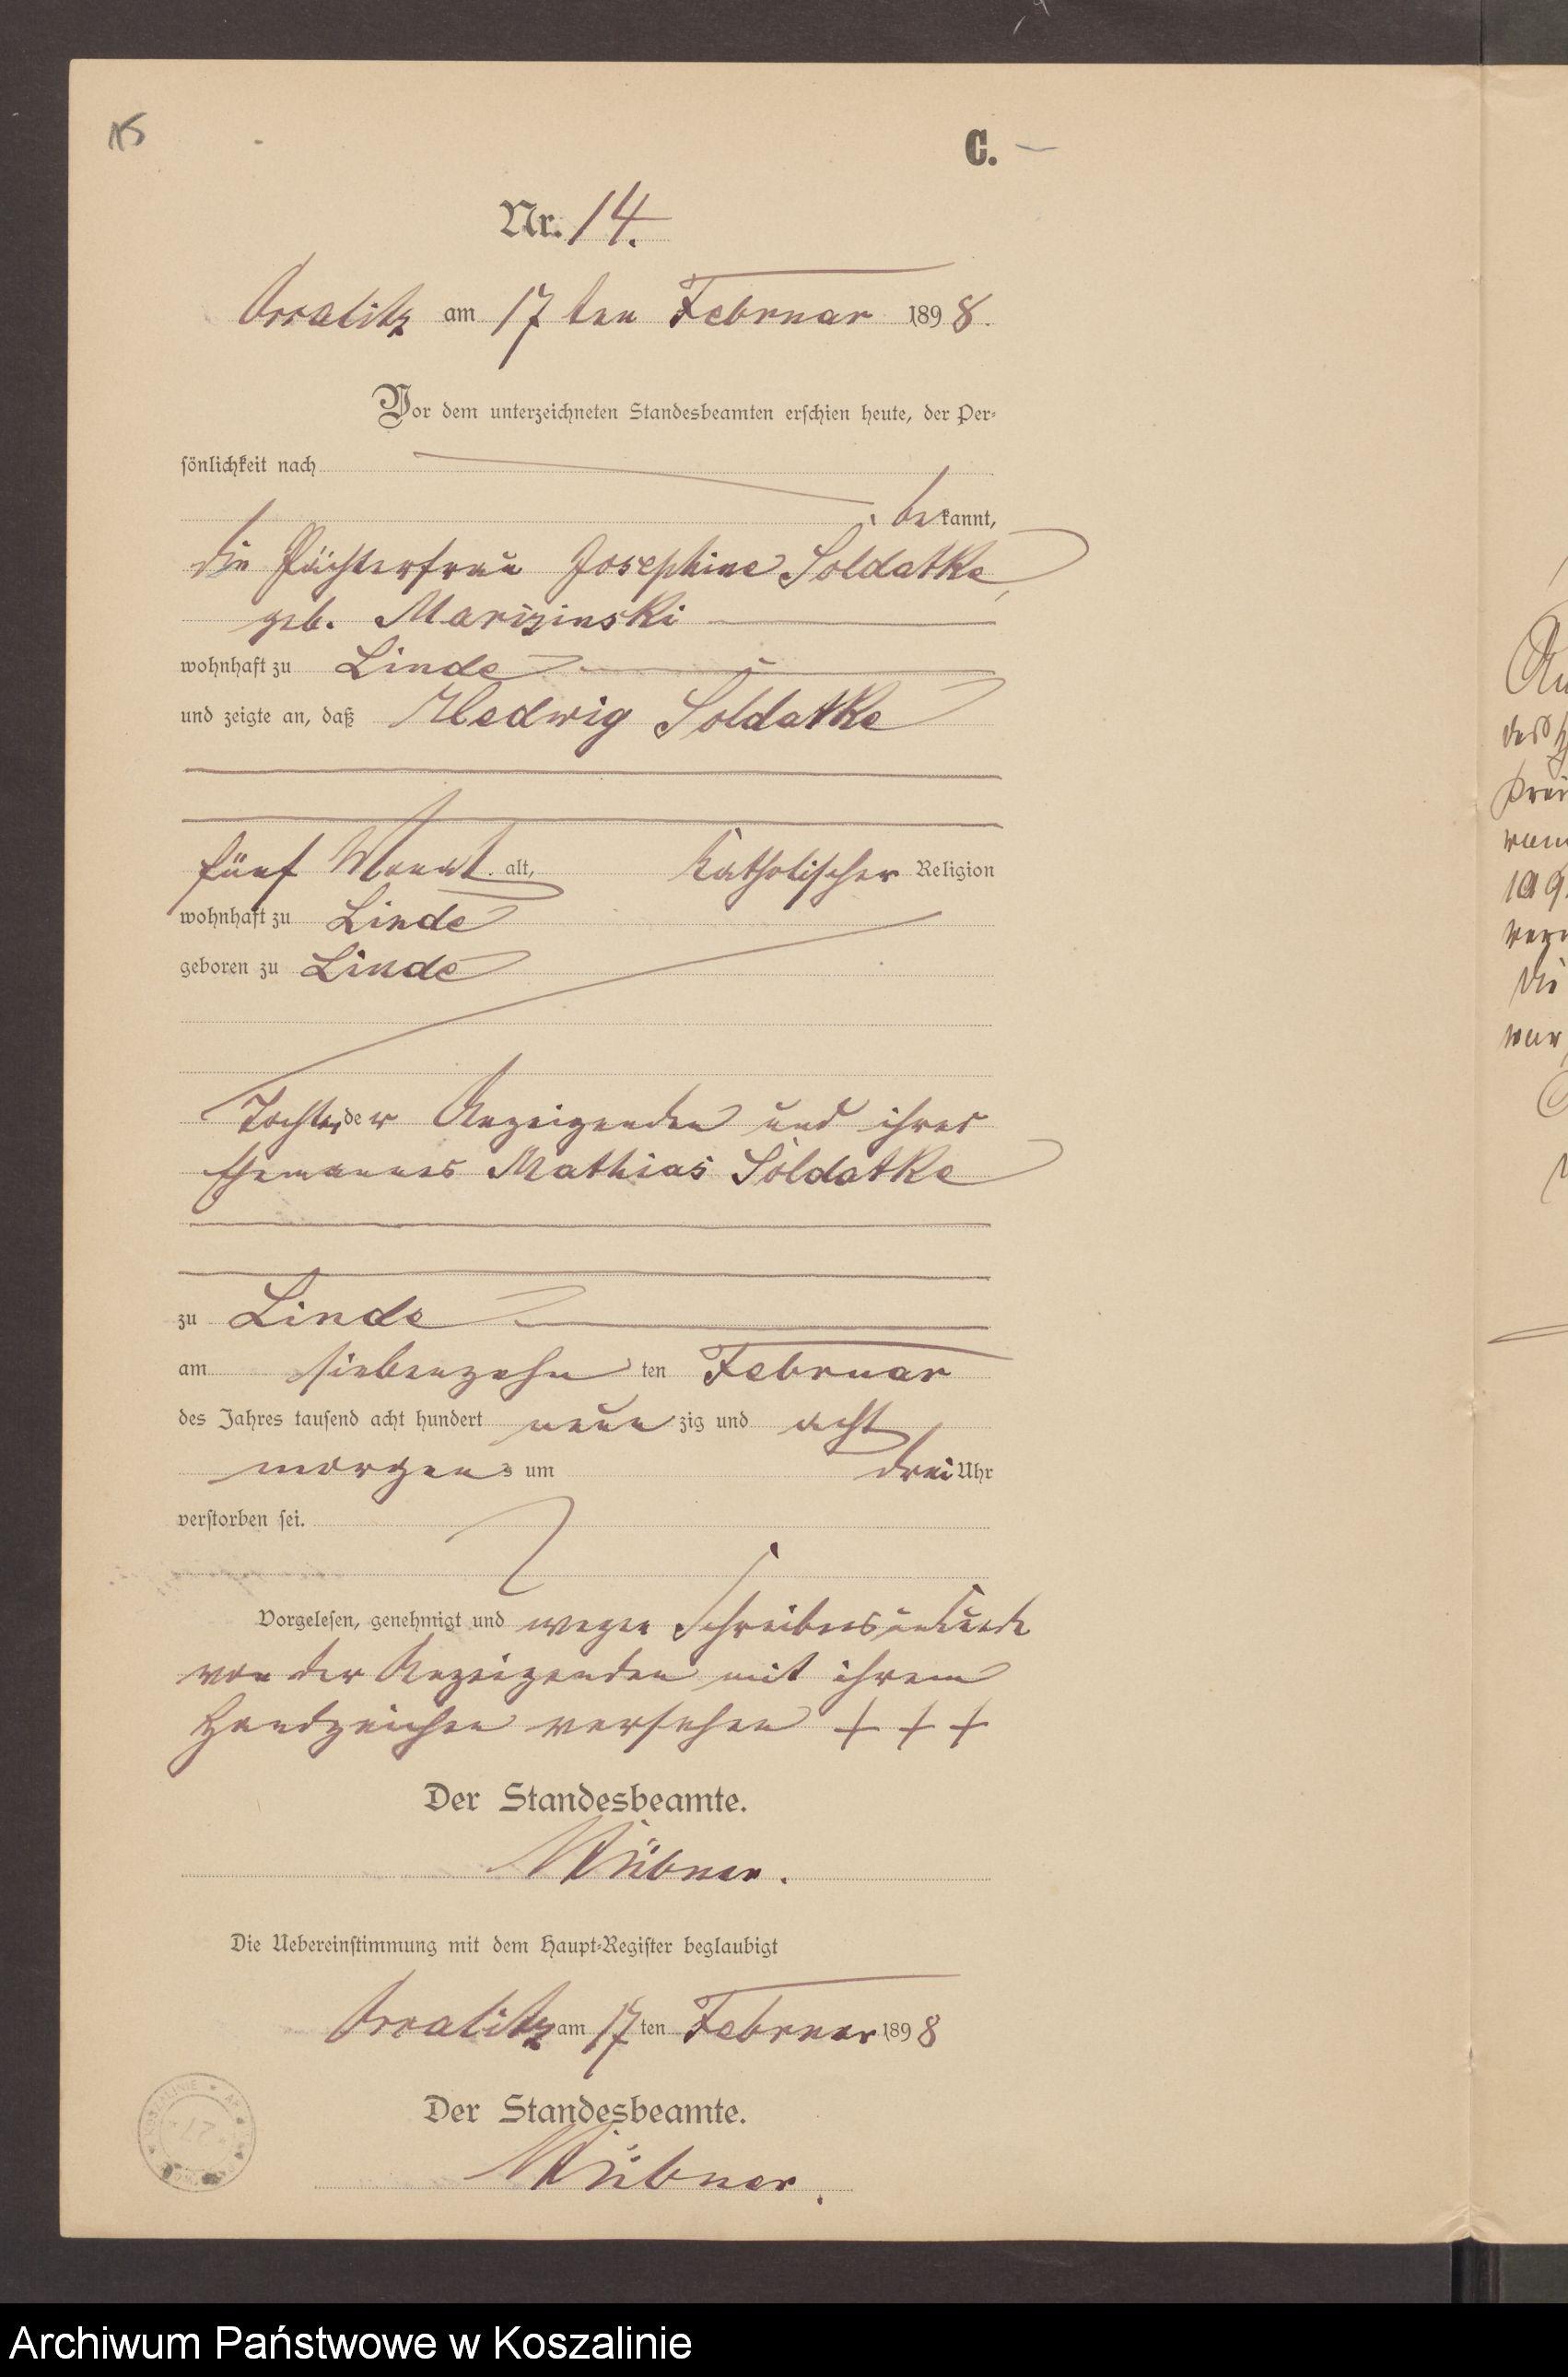 15
C.
Nr. 14.
am 17 ten Februar 1898.
Vor dem unterzeichneten Standesbeamten erschien heute, der Per-
sönlichkeit nach
bekannt,
die Pächterfrau Josephine Soldatke,
geb.
wohnhaft zu Linde
und zeigte an, daß Hedwig Soldatke
fünf Monat alt, katholischer Religion
wohnhaft zu Linde
geboren zu Linde
Tochter der Anzeigenden und ihres
Ehemannes Mathias Soldatke
zu Linde
am siebenzehn ten Februar
des Jahres tausend acht hundert neunzig und acht
morgens um drei Uhr
verstorben sei.
Vorgelesen, genehmigt und wegen
von der Anzeigenden mit ihrem
Handzeichen versehen + + +
Der Standesbeamte.
Die Uebereinstimmung mit dem Haupt-Register beglaubigt
am 17 ten Februar 1898
Der Standesbeamte.
Archiwum Państwowe w Koszalinie